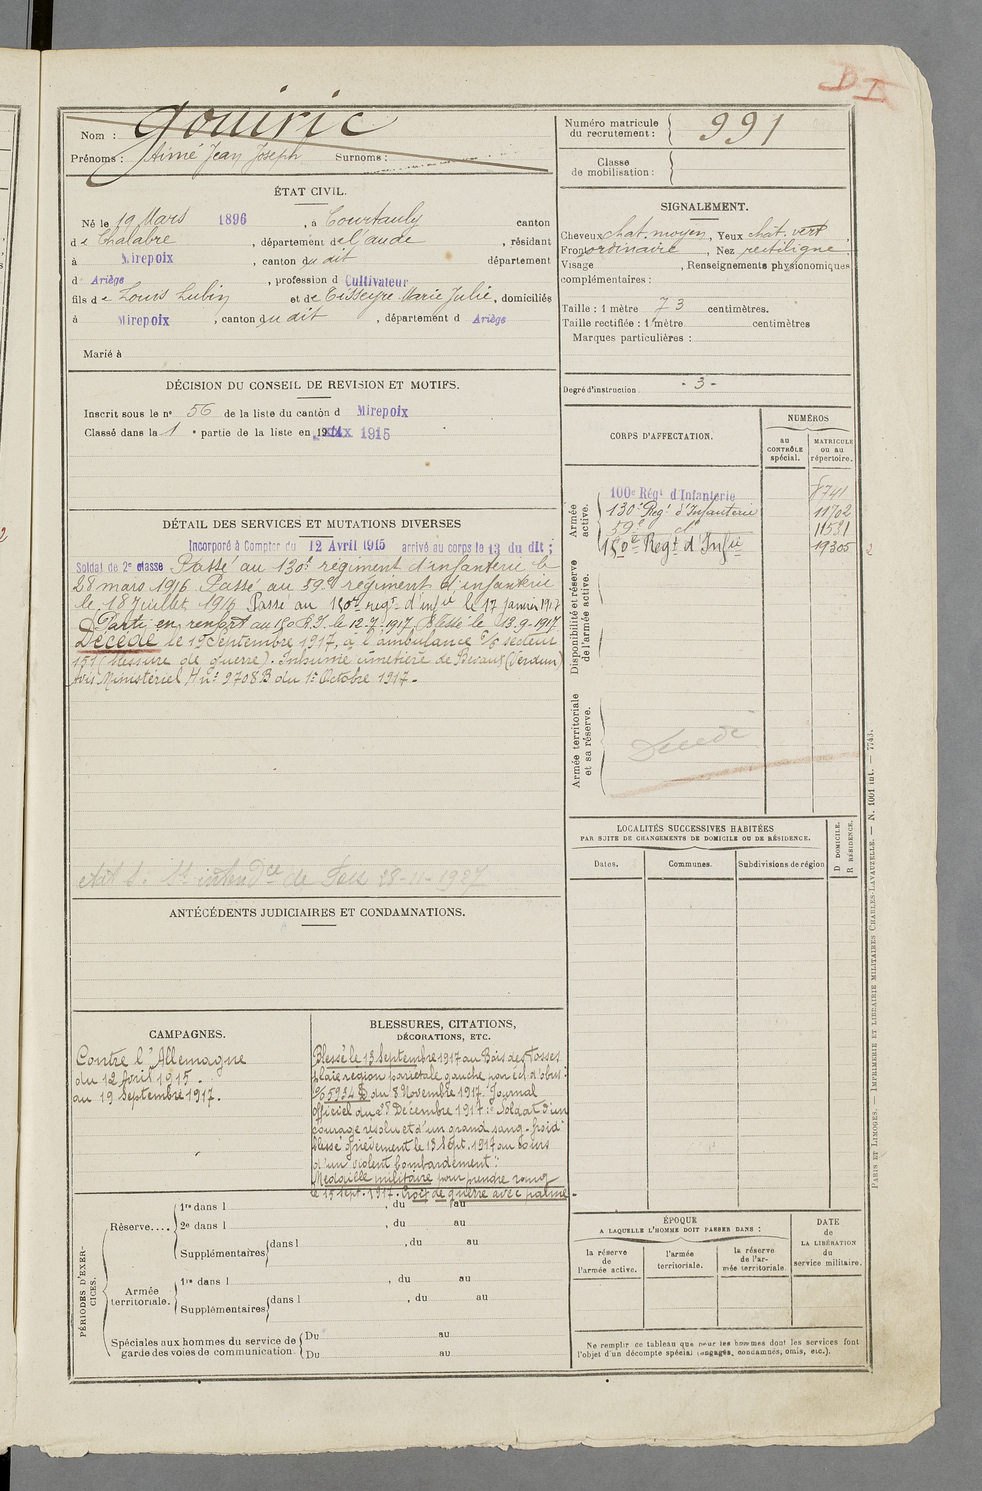 Nom : Gouiric
Prénoms : Aimé Jean Joseph Surnoms :
Numéro matricule du recrutement : 991
Classe de mobilisation :
ÉTAT CIVIL.
Né le 19 Mars 1896, à Courtauly canton
de Chalabre, département de l'aude, résidant
à Mirepoix, canton du dit département
d Ariège, profession d Cultivateur
fils de Louis Lubin et de Tisseyre Marie Julie, domiciliés
à Mirepoix, canton du dit, département d Ariège
Marié à
SIGNALEMENT.
Cheveux chat. moyen, Yeux chat. vert,
Front ordinaire, Nez rectiligne
Visage , Renseignements physionomiques
complémentaires :
Taille : 1 mètre 73 centimètres.
Taille rectifiée : 1 mètre centimètres
Marques particulières :
Degré d'instruction. - 3 -
DÉCISION DU CONSEIL DE REVISION ET MOTIFS.
Inscrit sous le n° 56 de la liste du canton d Mirepoix
Classé dans la 1 e partie de la liste en 1915
DÉTAIL DES SERVICES ET MUTATIONS DIVERSES
Incorporé à Compter du 12 Avril 1915 arrivé au corps le 13 du dit ;
Soldat de 2e classe Passé au 130e régiment d'infanterie le
28 mars 1916 Passé au 59e régiment d'infanterie
le 18 Juillet 1916 Passé au 150e regt d'infie le 17 janvier 1917
Parti en renfort au 150 R.I. le 12-7-1917. Blessé le 13-9-1917
Décédé le 19 Septembre 1917, à l'ambulance 3/6 secteur
151 (blessure de guerre). Inhumé cimetière de Bevaux (Verdun)
Avis Ministériel H n° 9708 B du 1er Octobre 1917.
28-11-1927
CORPS D'AFFECTATION.
NUMÉROS
au CONTRÔLE spécial.
MATRICULE ou au répertoire.
Armée active.
100e Régt d'Infanterie 8741
130e Regt d'Infanterie 11702
59e do 11531
150e Regt d'Infie 19305
Disponibilité et réserve de l'armée active.
Armée territoriale et sa réserve.
Décédé
LOCALITÉS SUCCESSIVES HABITÉES
PAR SUITE DE CHANGEMENTS DE DOMICILE OU DE RÉSIDENCE.
Dates. Communes. Subdivisions de région
D DOMICILE.
R RÉSIDENCE.
ANTÉCÉDENTS JUDICIAIRES ET CONDAMNATIONS.
CAMPAGNES.
Contre l'Allemagne
du 12 Avril 1915.
au 19 Septembre 1917.
BLESSURES, CITATIONS,
DÉCORATIONS, ETC.
Blessé le 13 Septembre 1917 au Bois des Fosses
plaie région pariétale gauche par écl. d'obus.
o/ 5934 D du 8 Novembre 1917. Journal
officiel du 28 Décembre 1917 : "Soldat d'un
courage résolu et d'un grand sang-froid
blessé grièvement le 13 Sept. 1917 au cours
d'un violent bombardement".
Médaille militaire pour prendre rang
le 15 sept. 1917. Croix de guerre avec palme.
PÉRIODES D'EXERCICES.
Réserve....
1re dans l , du au
2e dans l , du au
Supplémentaires dans l , du au
Armée territoriale.
1re dans l , du au
Supplémentaires dans l , du au
Spéciales aux hommes du service de garde des voies de communication.
Du au
Du au
ÉPOQUE
A LAQUELLE L'HOMME DOIT PASSER DANS :
la réserve de l'armée active.
l'armée territoriale.
la réserve de l'armée territoriale.
DATE de LA LIBÉRATION du service militaire.
Ne remplir ce tableau que pour les hommes dont les services font
l'objet d'un décompte spécial (engagés, condamnés, omis, etc.).
PARIS ET LIMOGES. — IMPRIMERIE ET LIBRAIRIE MILITAIRES CHARLES-LAVAUZELLE. — N. 1001 int. — 7743.